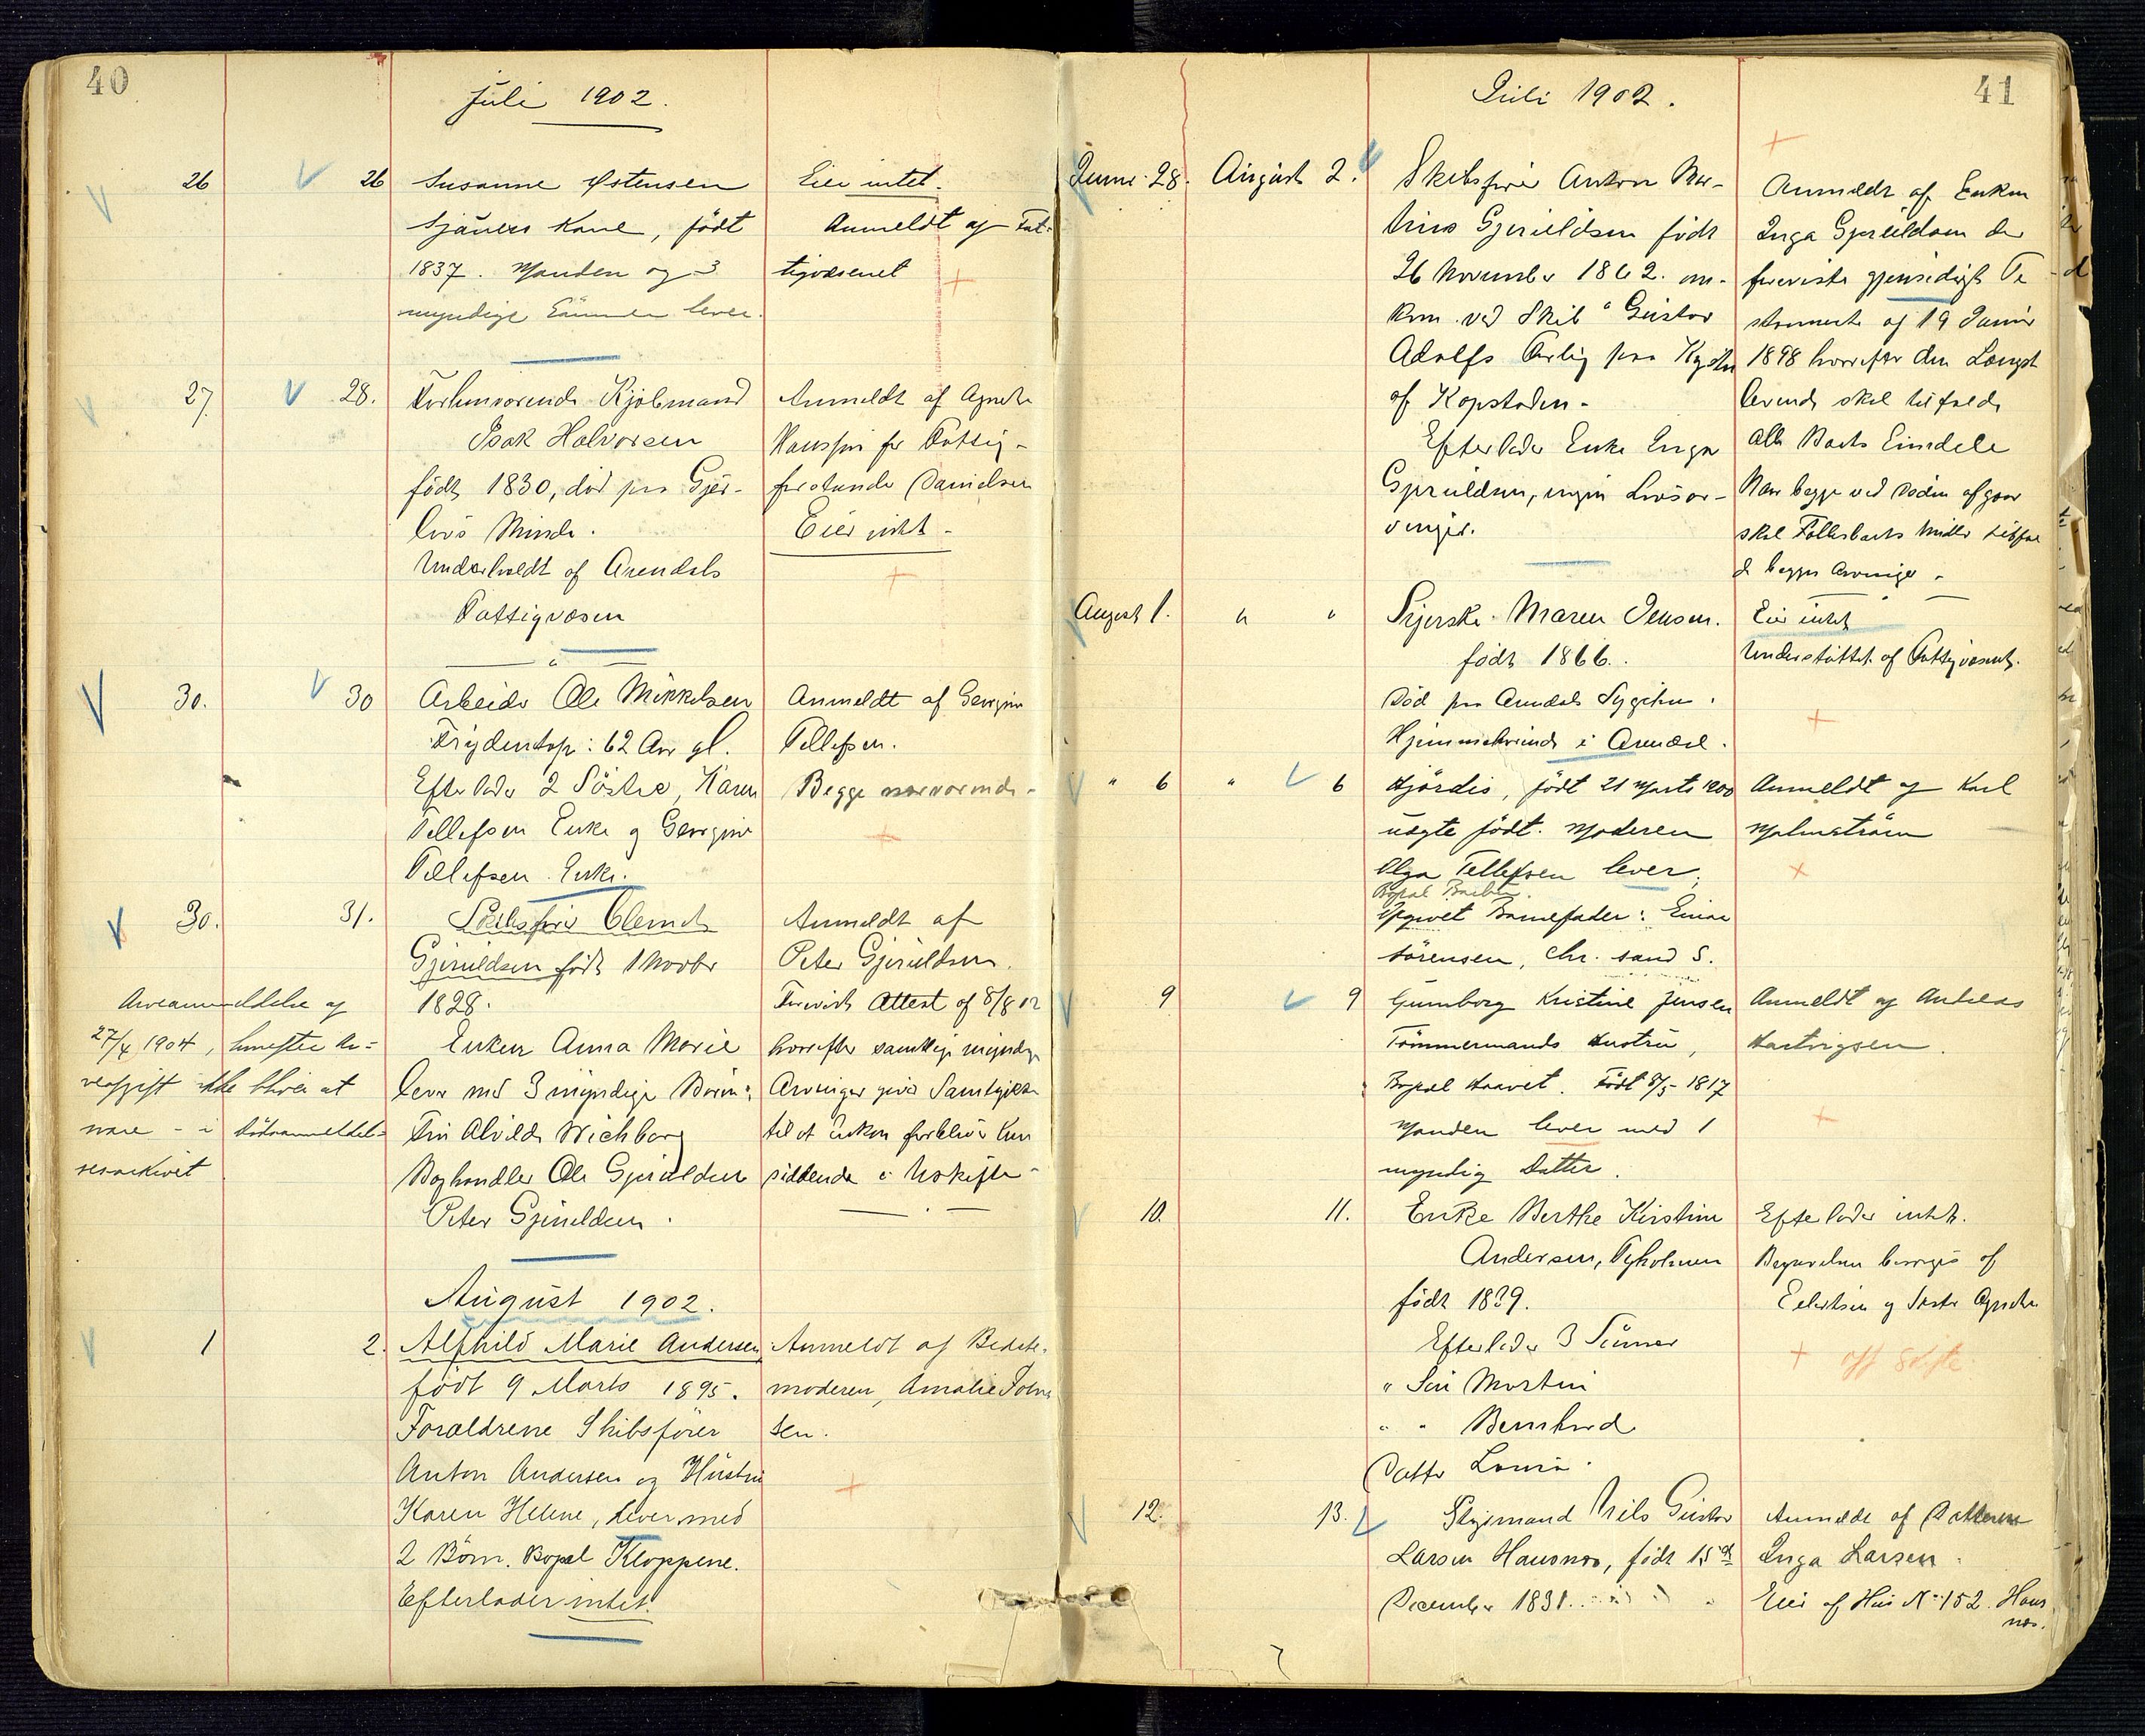 40
juli 1902.
26 26 Susanne Østensen
Sjauers Kone, født
1837. Manden og 3
myndige Sønner lever.
Eier intet.
Anmeldt af Fat-
tigvæsenet
27 28. Forhenværende Kjøbmand
Isak Halvorsen
født 1830, død paa Gjer-
løvs Minde.
Underholdt af Arendals
Fattigvæsen
Anmeldt af Agnethe
for Fattig-
forstander Danielsen
Eier intet -
30. 30 Arbeider Ole Mikkelsen
62 Aar gl.
Efterlader 2 Søstre, Karen
Tellefsen Enke og Georgine
Tellefsen Enke.
Anmeldt af Georgine
Tellefsen.
Begge nærværende -
30. 31. Skibsfører Clemet
Gjeruldsen født 1 Novbr
1828.
Enken Anna Marie
lever med 3 myndige Børn:
Fru Alvilde Wichborg
Boghandler Ole Gjeruldsen
Peter Gjeruldsen.
Anmeldt af
Peter Gjeruldsen.
Forevist Attest af 8/8 02
hvorefter samtlige myndige
Arvinger giver Samtykke
til at Enken forbliver hen
siddende i Uskifte -
Arveanmeldelse af
27/4 1904, hvorefter Ar-
veafgift ikke bliver at
svare - i Dødsanmeldel-
sesarkivet
August 1902.
1 2. Alfhild Marie Andersen
født 9 Marts 1895.
Forældrene Skibsfører
Anton Andersen og Hustru
Karen Helene, lever med
2 Børn. Bopæl Kloppene.
Efterlader intet.
Anmeldt af Bedste-
moderen, Amalie
sen.
41
Juli 1902.
28. August 2. Skibsfører Anton Mar-
tinus Gjeruldsen født
26 November 1862. om-
kom ved Skib "Gustav
Adolfs Forlis paa Kysten
af Kapstaden -
Efterlader Enke Inga
Gjeruldsen, ingen Livsar-
vinger.
Anmeldt af Enken
Inga Gjeruldsen der
foreviste gjensidigt Te
stamente af 19 Januar
1898 hvorefter den Længst
levende skal tilfalde
alle Boets Eiendele
Naar begge ved Døden afgaar
skal Fællesboets Midler tilfal
de begges Arvinger -
August 1. " " Syerske Maren Jensen.
født 1866.
Død paa Arendals Sygehus.
Hjemmehørende i Arendal.
Eier intet
Understøttet af Fattigvæsenet.
" 6 " 6 Hjørdis, født 21 Marts 1900
uægte født. Moderen
Olga Tellefsen lever.
Bopæl Barbu.
Opgivet Barnefader: Einar
Sørensen, Chr. sand S.
Anmeldt af Karl
Malmstrøm
9 9 Gunnborg Kristine Jensen
Tømmermands Hustru,
Bopæl Haavet. Født 8/5 - 1817
Manden lever med 1
myndig Datter.
Anmeldt af Andreas
Hartvigsen.
10. 11. Enke Berthe Kirstine
Andersen, Tyholmen
født 1839.
Efterlader 3 Sønner
" Søn Martin
" " Bernhard
Datter Lovise.
Efterlader intet.
Begravelsen besørges af
Eilertsen og Søster Agnethe
12. 13. Styrmand Nils Gustav
Larsen Havsnæs, født 15de
December 1831.
Anmeldt af Datteren
Inga Larsen.
Eier af Hus No 152. Havs
næs.